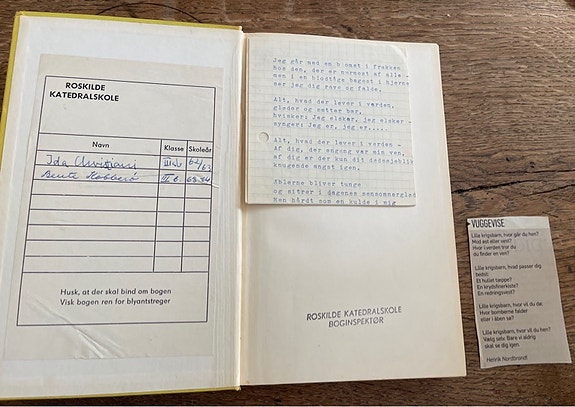 ROSKILDE
KATEDRALSKOLE
Navn Klasse Skoleår
Ida 62/63
Bente 63-64
Husk, at der skal bind om bogen
Visk bogen ren for blyantstreger
Jeg går med en blomst i frakken
hos den, der er nærmest af alle -
men i en blodtige bagest i hjernen
ser jeg dig rave og falde.
Alt, hvad der lever i verden,
gløder og sætter bær,
hvisker: Jeg elsker, jeg elsker -
synger: Jeg er, jeg er.....
Alt, hvad der lever i verden -
af dig, der engang var min ven,
af dig er der kun dit
knugende angst igen.
Æblerne bliver tunge
og sitrer i dagenes sensommerglød
Men hårdt som en kulde i mig
ROSKILDE KATEDRALSKOLE
BOGINSPEKTØR
VUGGEVISE
Lille krigsbarn, hvor går du hen?
Mod øst eller vest?
Hvor i verden tror du
du finder en ven?
Lille krigsbarn, hvad passer dig
bedst:
Et hullet tæppe?
En krydsfinerkiste?
En redningsvest?
Lille krigsbarn, hvor vil du dø:
Hvor bomberne falder
eller i åben sø?
Lille krigsbarn, hvor vil du hen?
Vælg selv. Bare vi aldrig
skal se dig igen.
Henrik Nordbrandt